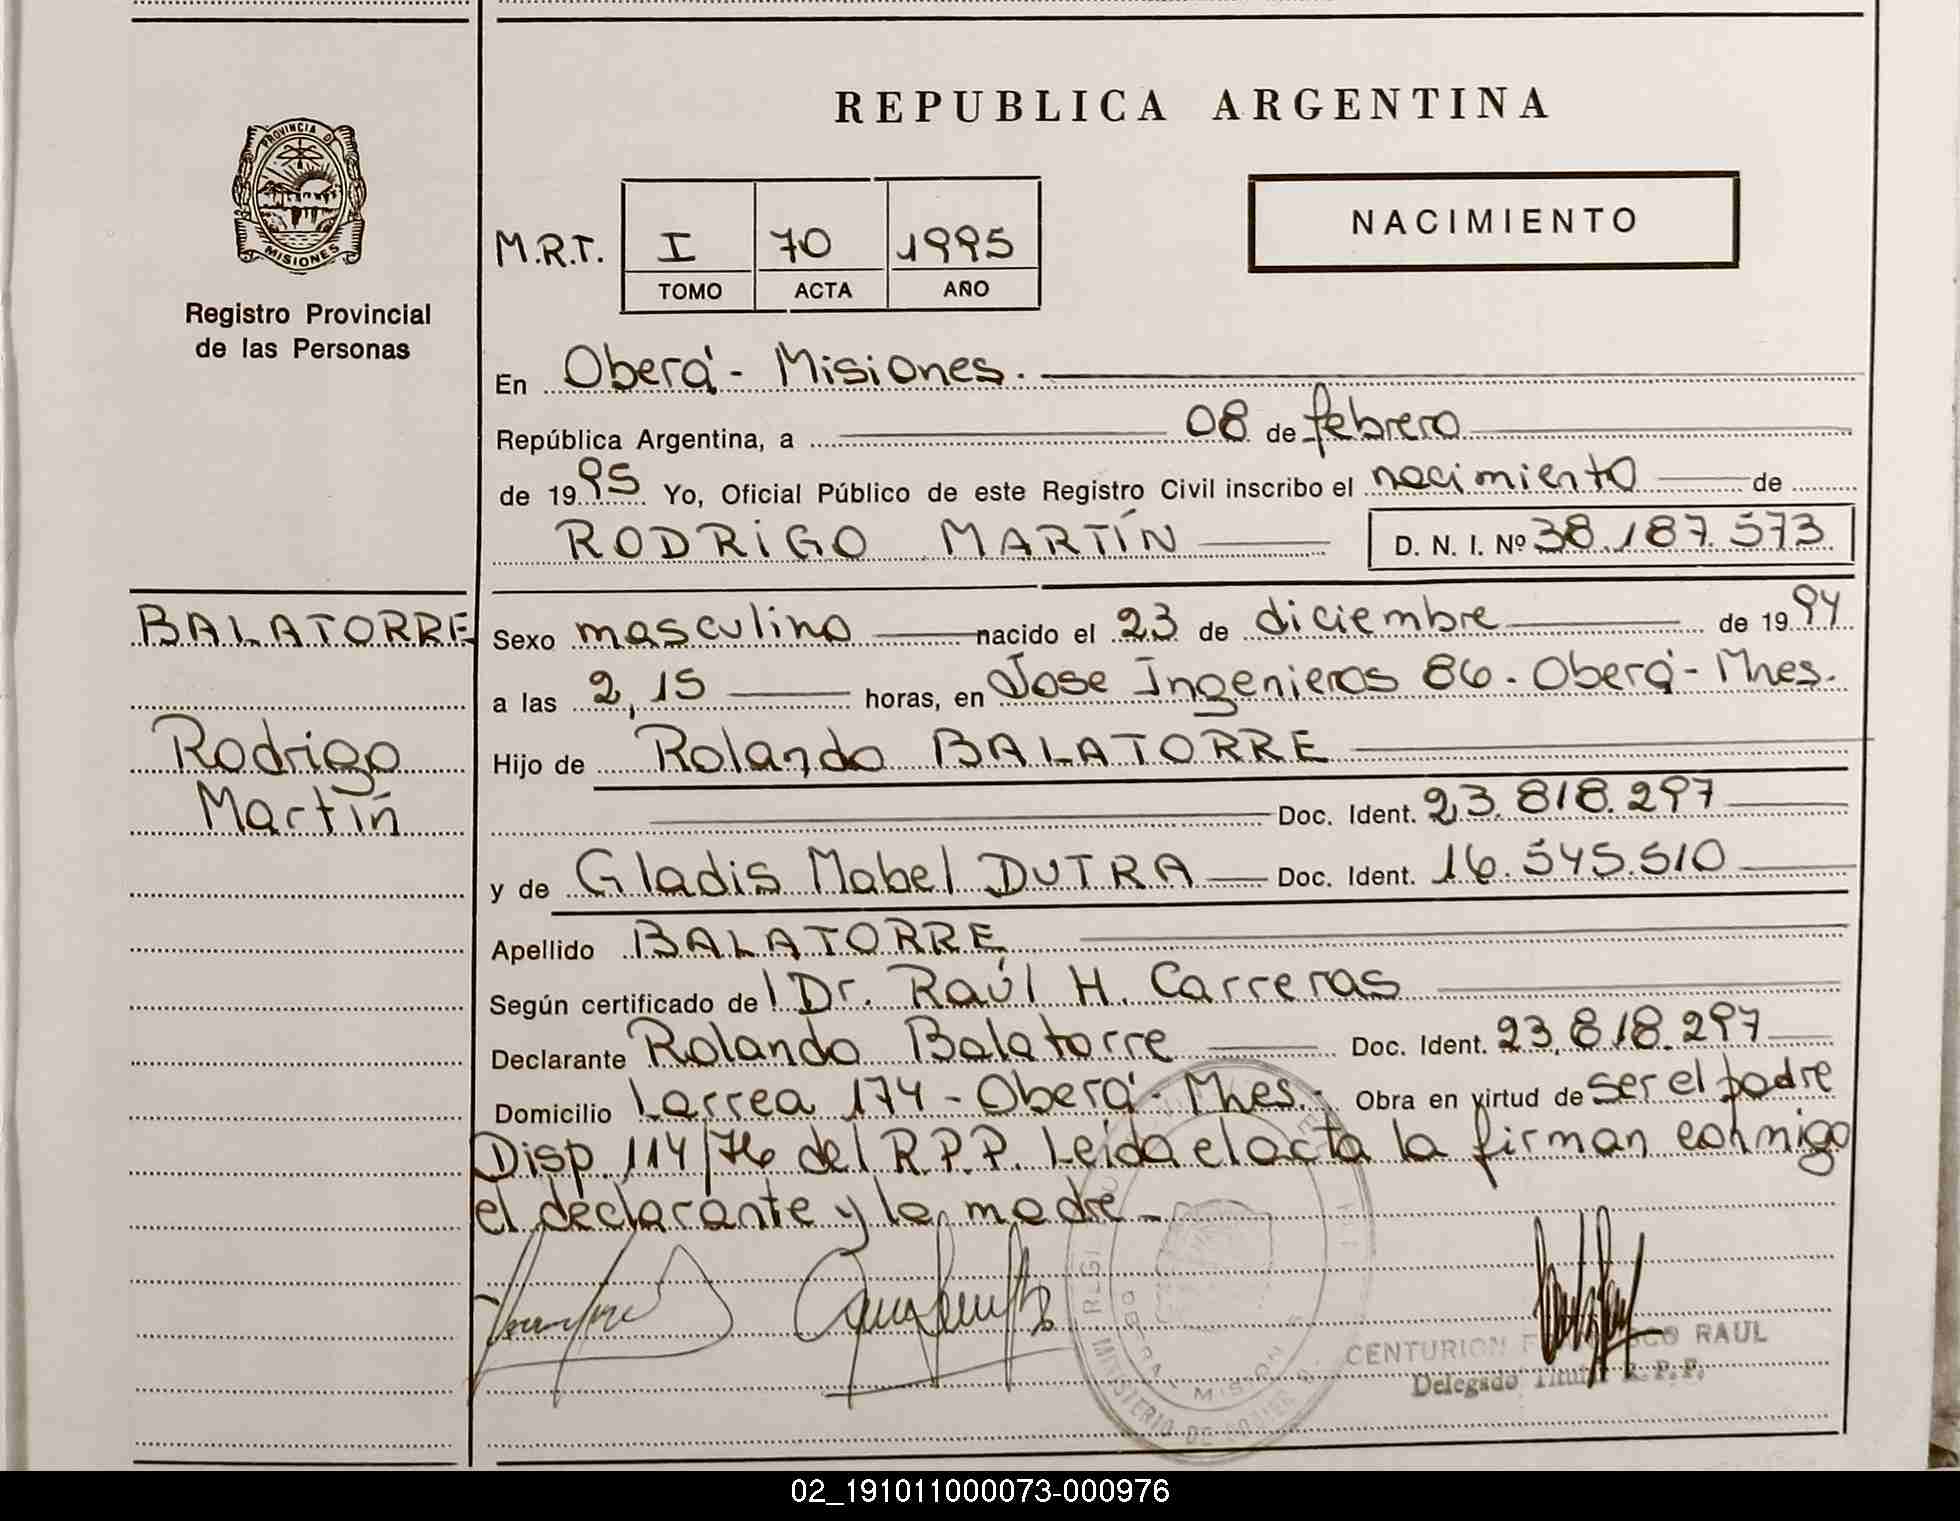 REPUBLICA ARGENTINA
PROVINCIA DE
MISIONES
Registro Provincial
de las Personas
M.R.T. I 70 1995
TOMO ACTA AÑO
NACIMIENTO
En Oberá - Misiones.
República Argentina, a 08 de febrero
de 1995 Yo, Oficial Público de este Registro Civil inscribo el nacimiento de
RODRIGO MARTÍN D. N. I. Nº 38.187.573
BALATORRE
Rodrigo
Martín
Sexo masculino nacido el 23 de diciembre de 1994
a las 2,15 horas, en Jose Ingenieros 86 - Oberá - Mnes.
Hijo de Rolando BALATORRE
Doc. Ident. 23.818.297
y de Gladis Mabel DUTRA Doc. Ident. 16.545.510
Apellido BALATORRE
Según certificado de l Dr. Raúl H. Carreras
Declarante Rolando Balatorre Doc. Ident. 23.818.297
Domicilio Larrea 174 - Oberá - Mnes. Obra en virtud de ser el padre
Disp. 114/76 del R.P.P. Leída el acta la firman conmigo
el declarante y la madre -
CENTURION RAUL
Delegado Titular R.P.P.
MINISTERIO DE
02_191011000073-000976